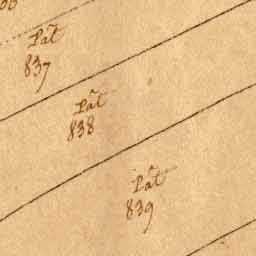 Pat
837
Pat
838
Pat
839